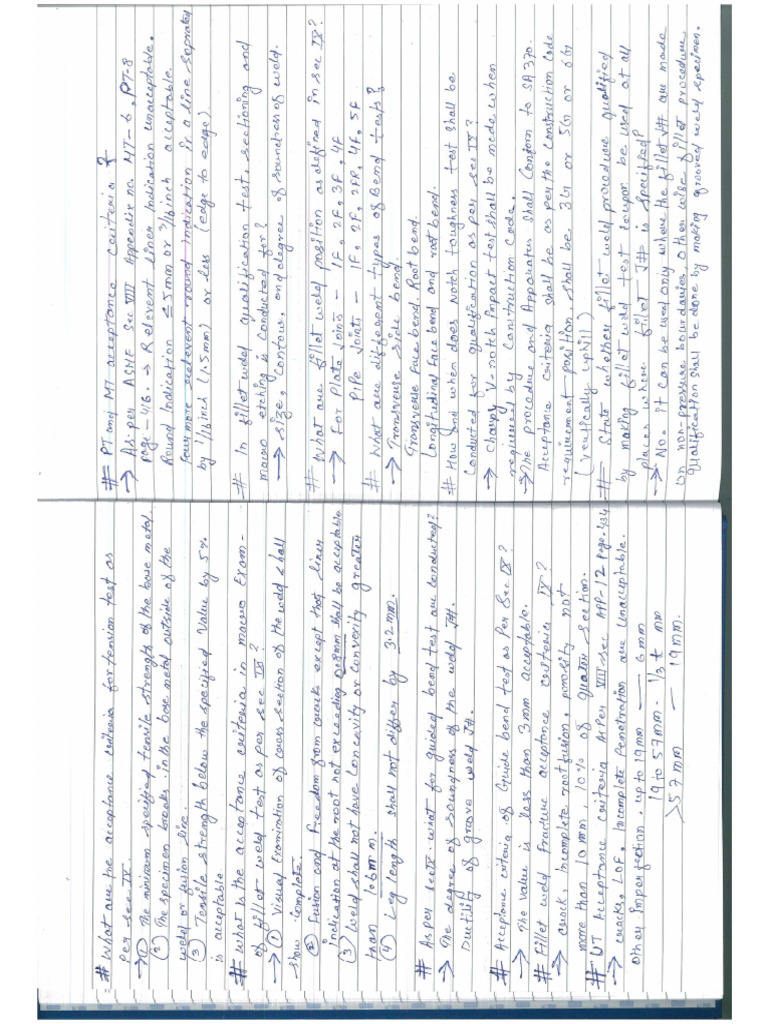 # What are the acceptance criteria for tension test as
per sec IX.
→ ① The minimum specified tensile strength of the base metal
② The specimen breaks in the base metal outside of the
weld or fusion line.
③ Tensile strength below the specified value by 5%
is acceptable
# What is the acceptance criteria in macro Exam-
of fillet weld test as per sec IX?
→ ① Visual Examination of cross section of the weld shall
show complete.
② Fusion and freedom from cracks except that liner
indication at the root not exceeding 0.8mm shall be acceptable
③ Weld shall not have concavity or convexity greater
than 1.6mm.
④ Leg length shall not differ by 3.2mm.
# As per sec IX what for guided bend test are conducted?
→ The degree of soundness of the weld J#.
Ductility of groove weld J#.
# Acceptance criteria of Guide bend test as Per Sec IX?
→ The value is less than 3mm acceptable.
# Fillet weld fracture acceptance criteria IX?
→ crack, incomplete rootfusion, porosity not
more than 10mm, 10% of quater section.
# UT Acceptance criteria As Per VIII sec APP-12 Page.434
→ cracks, LOF, Incomplete penetration are Unacceptable.
Other Imperfection, up to 19mm — 6mm
19 to 57mm - 1/3 t mm
>57mm — 19mm.
# PT and MT acceptance criteria ?
→ As per ASME Sec VIII Appendix no. MT-6, PT-8
page-416. → Relevent liner Indication unacceptable.
Round Indication ≤5mm or 3/16 inch acceptable.
Four more relevent round indication in a line seprated
by 1/16 inch (1.5mm) or less (edge to edge)
# In fillet weld qualification test, sectioning and
macro etching is conducted for?
→ Size, contour, and degree of soundness of weld.
# What are fillet weld position as defined in sec IX?
→ For Plate Joints - 1F, 2F, 3F, 4F
Pipe Joints - 1F, 2F, 2FR, 4F, 5F
# What are different types of Bend tests?
→ Transverse side bend.
Transverse Face bend, Root bend.
Longitudinal Face bend and root bend.
# How and when does Notch toughness test shall be
Conducted for qualification as per sec IX?
→ Charpy V-notch impact test shall be made when
required by Construction Code.
→ The procedure and Apparatus shall Conform to SA 370.
Acceptance criteria shall be as per the construction Code
requirement position, shall be 3G or 5G or 6G
(vertically uphill)
# State whether fillet weld procedure qualified
by making fillet weld test coupon be used at all
places where fillet J# is specified?
→ No. it can be used only where the fillet J# are made
on non-pressure boundaries. Otherwise fillet procedure
qualification shall be done by making grooved weld specimen.